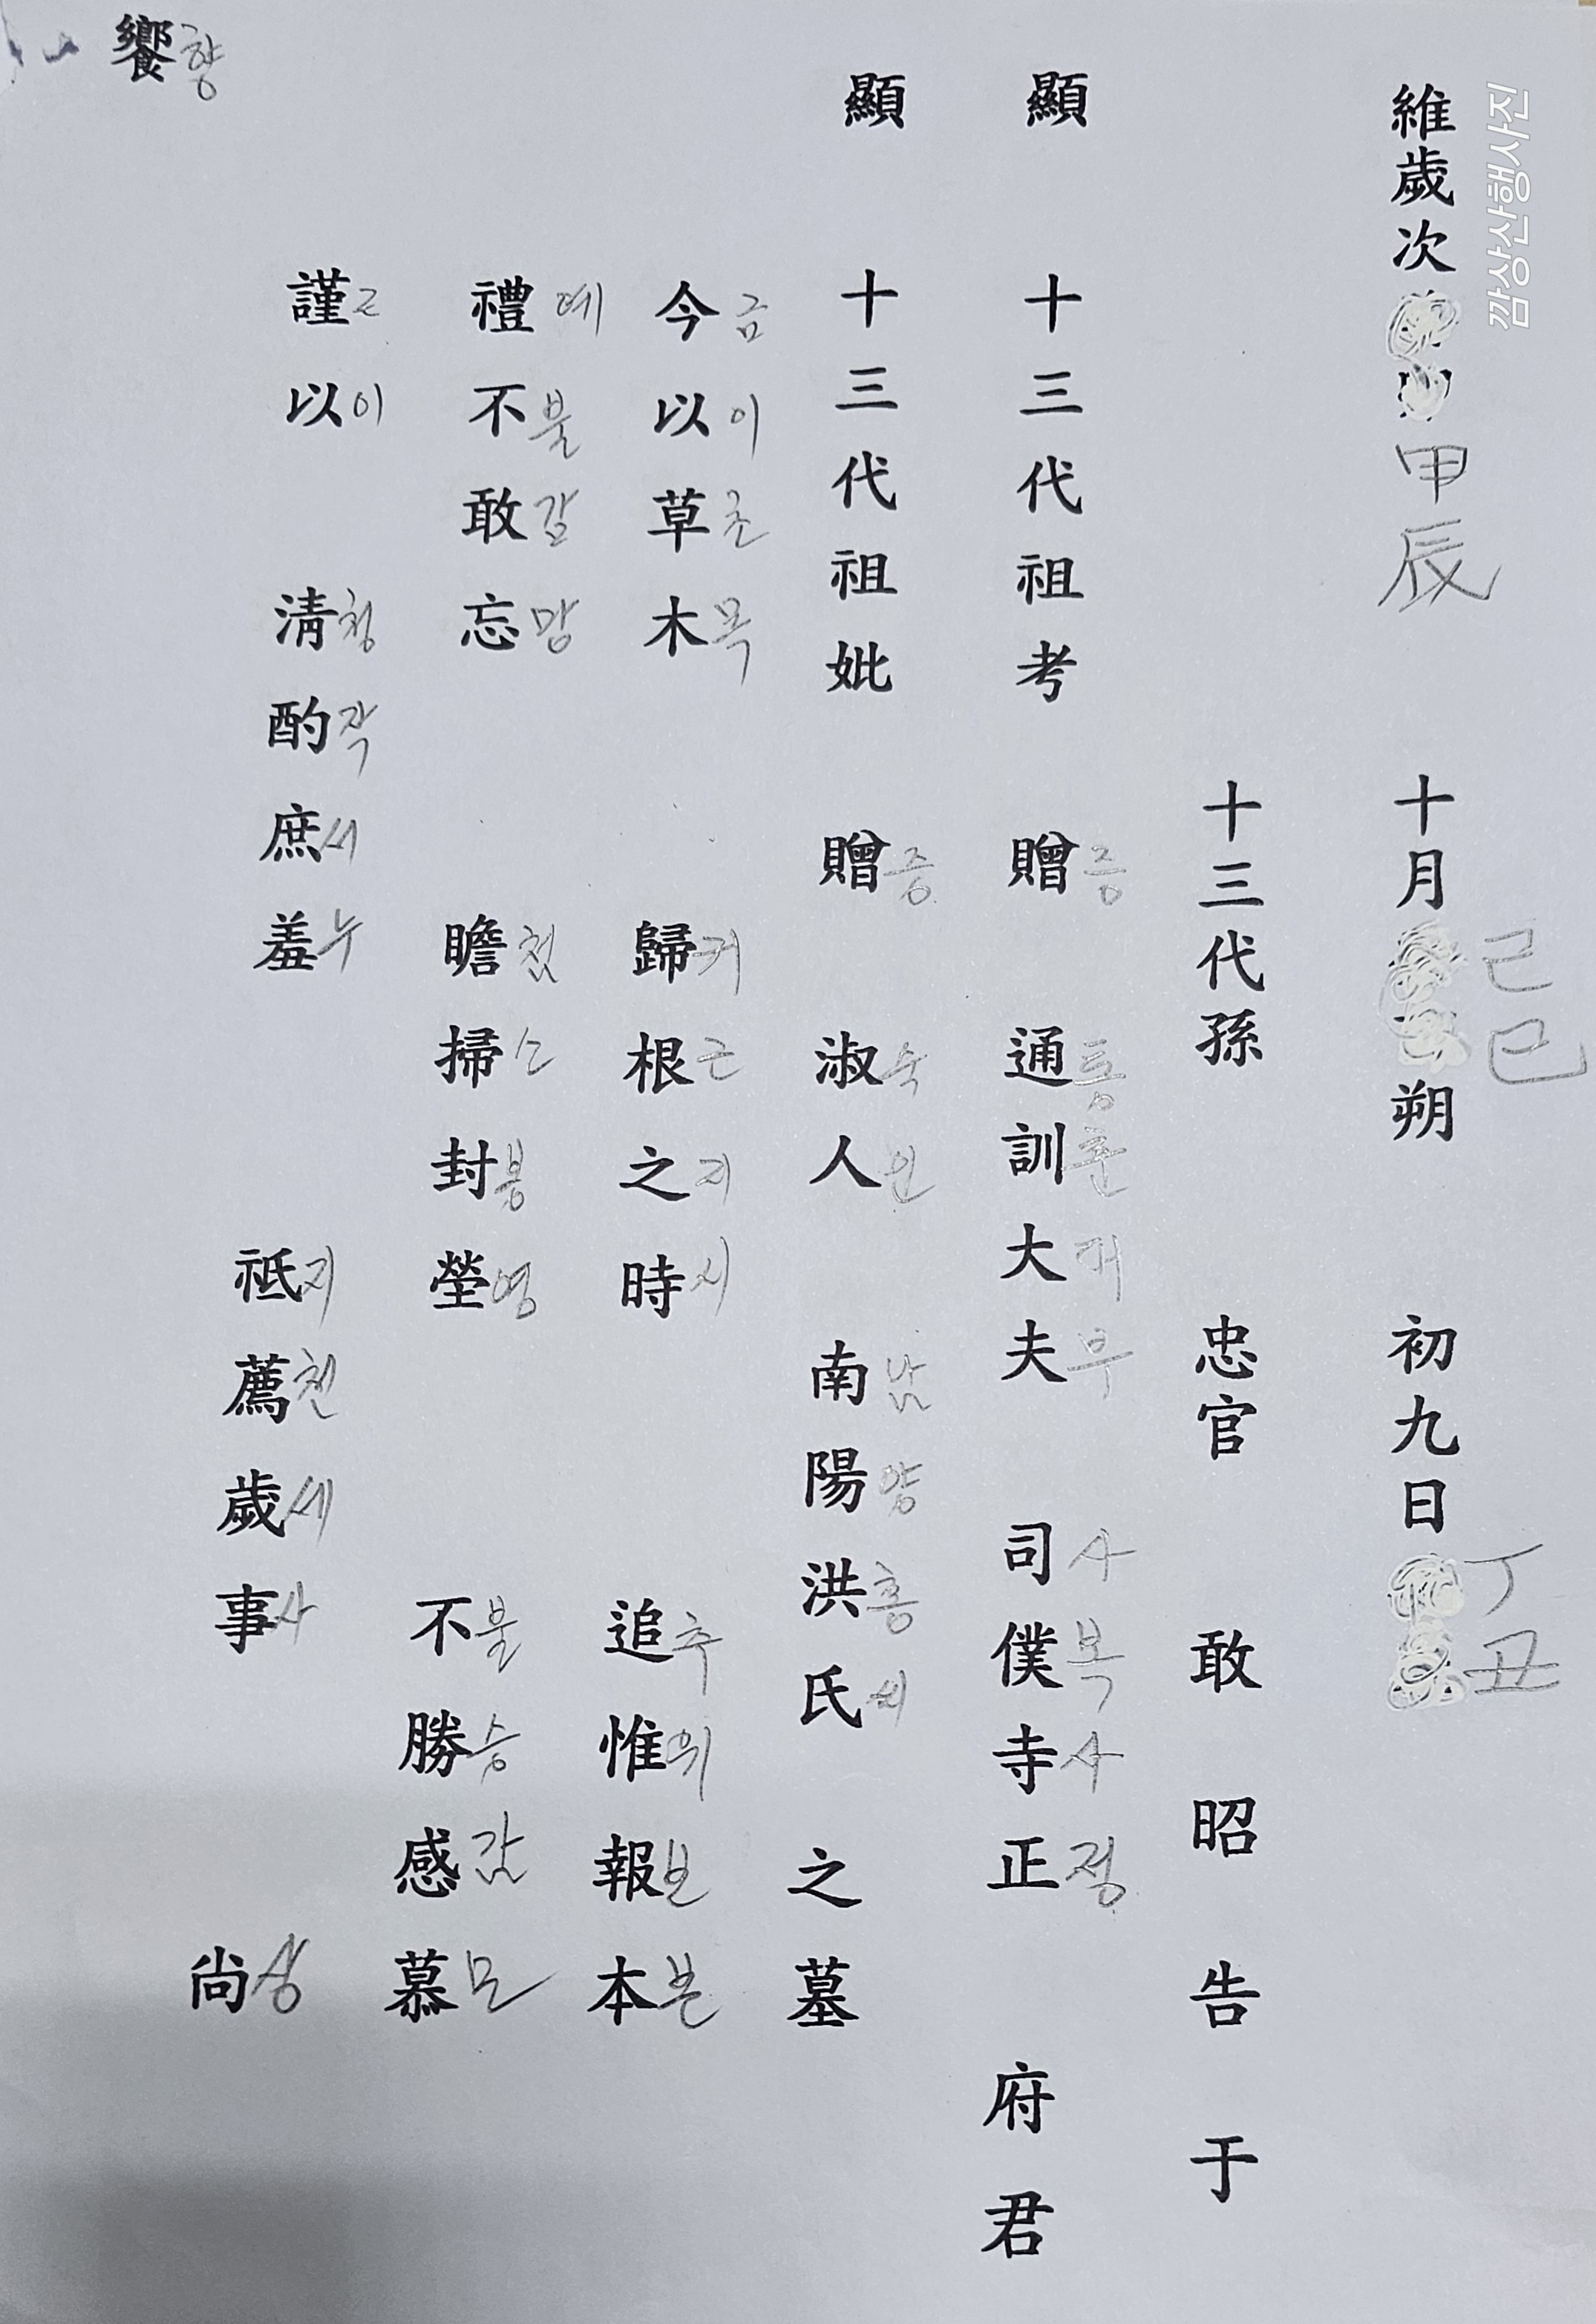 깜상산행사진
維歲次 甲辰 十月 己巳 朔 初九日 丁丑
十三代孫 忠官 敢昭告于
顯 十三代祖考 贈증 通통訓훈大대夫부 司사僕복寺사正정 府君
顯 十三代祖妣 贈증 淑숙人인 南남陽양洪홍氏씨 之墓
今금以이草초木목 歸귀根근之지時시 追추惟위報보本본
禮예不불敢감忘망 瞻첨掃소封봉塋영 不불勝승感감慕모
謹근以이 淸청酌작庶서羞수 祗지薦천歲세事사 尙상
饗향